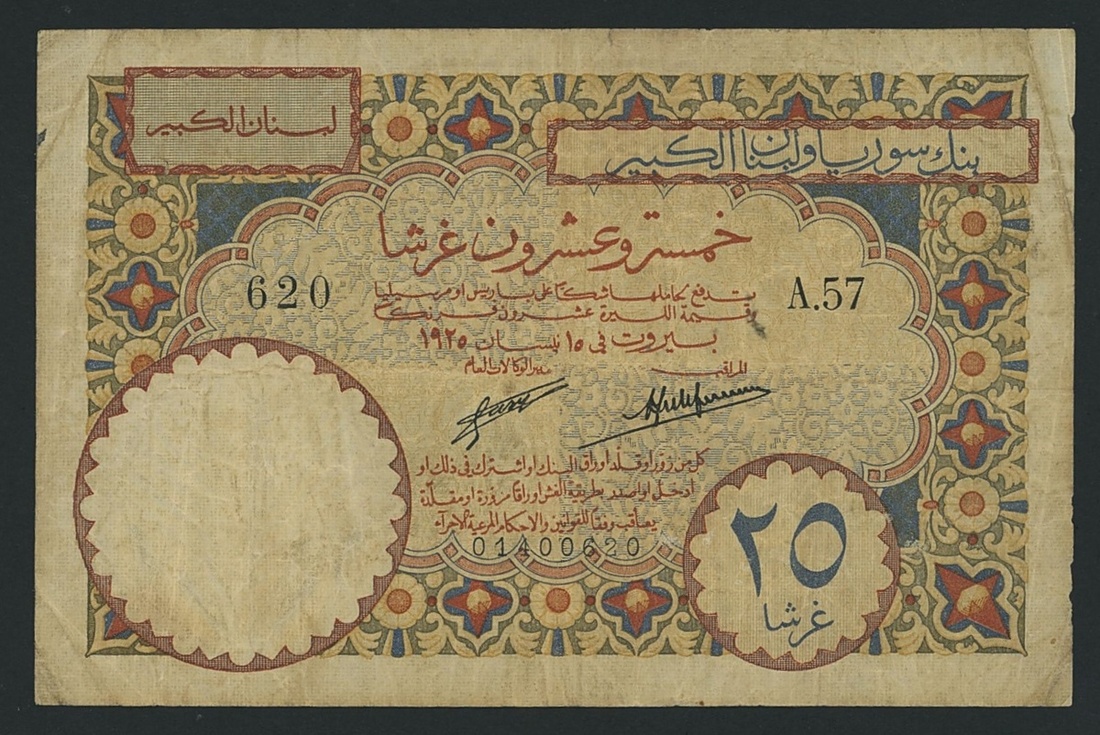 لبنان الكبير
بنك سوريا ولبنان الكبير
خمسة وعشرون غرشا
620
A.57
تدفع لحاملها شكًا على باريس او مرسيليا
قيمة الليرة عشرون فرنكًا
بيروت في ١٥ نيسان ١٩٢٥
المراقب
مدير الوكالات العام
كل من زور او قلد اوراق البنك او اشترك في ذلك او
ادخل او اصدر بطريقة الغش اوراقا مزورة او مقلدة
يعاقب وفقا للقوانين والاحكام المرعية الاجراء
01400620
٢٥
غرشا